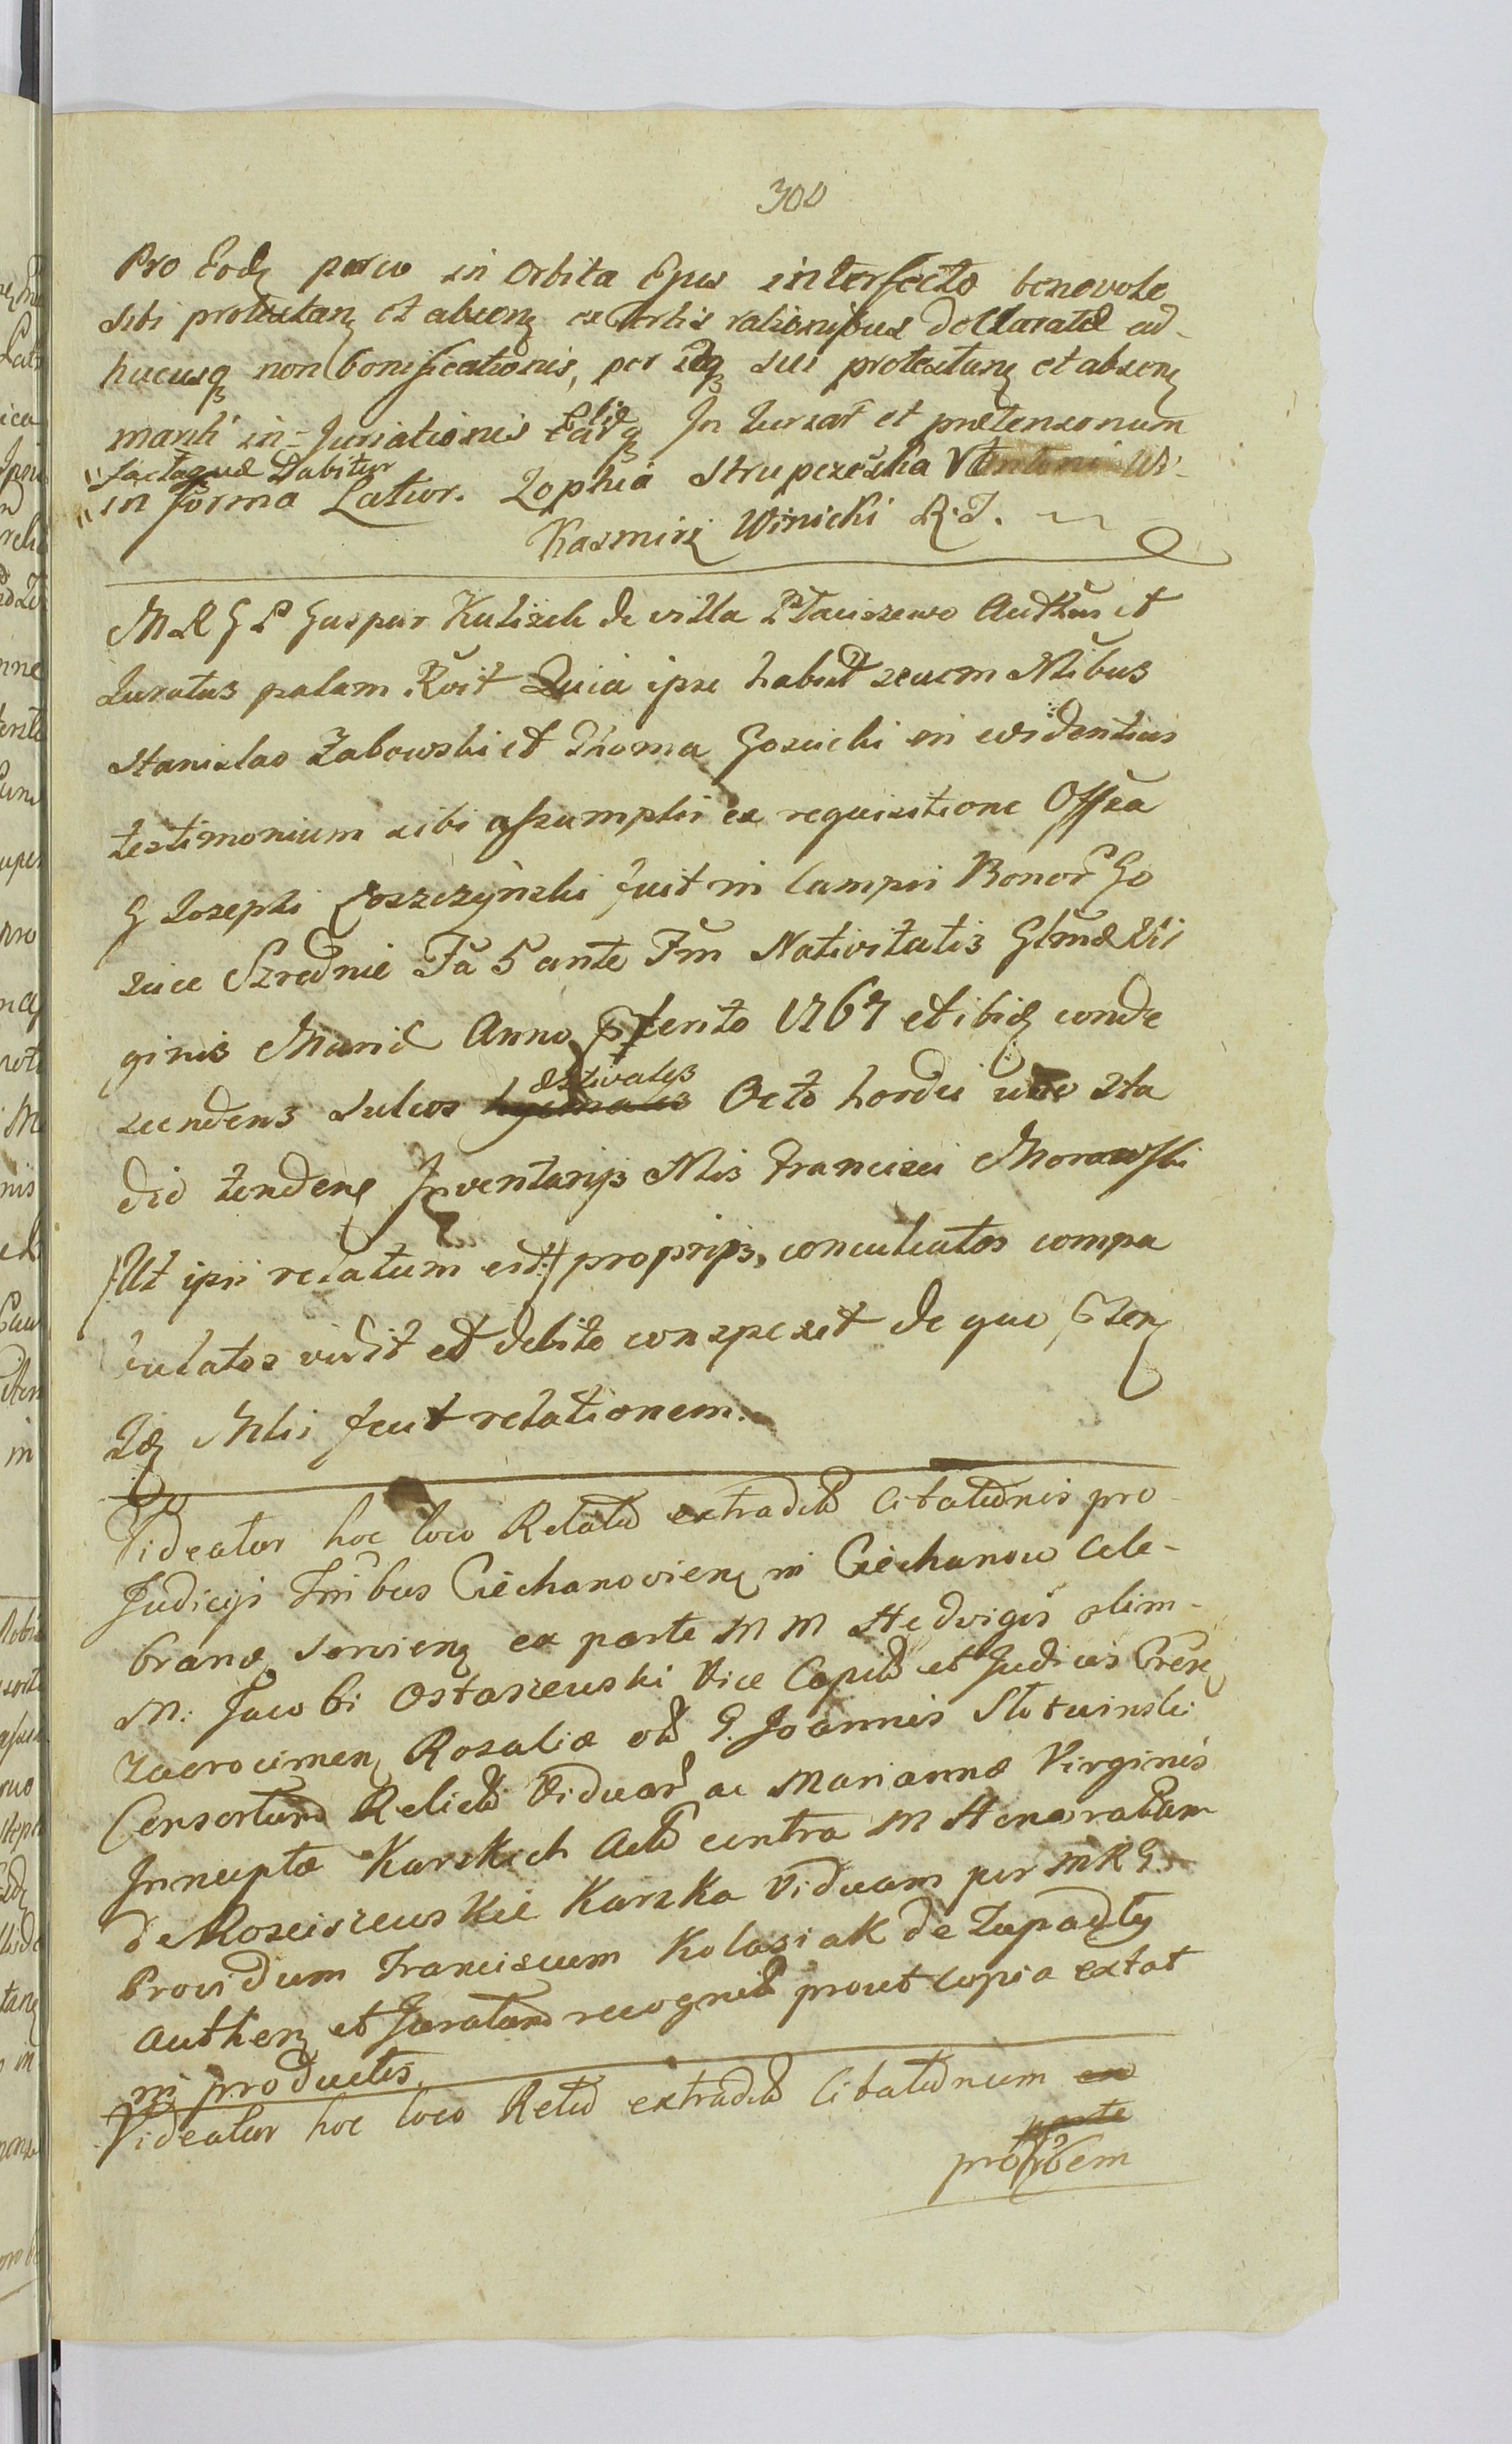 300
Pro Eodꝫ porco in orbita Ejus interfecto benevole
sibi protestanꝫ et absenꝫ ex certis rationibus declarata ad-
hucusqꝫ non bonificationis, per idqꝫ sui protestanꝫ et absenꝫ
mariti in-Juriationis In Jursar et prætensonum
"factaque Dabitur
"in forma Latior. Zophia Strupczeska
Kazmirz Winicki R.T.
M R G P Gaspar Kulisek de villa Płaciszewo Authus et
Juratus palam Rvit Quia ipse habitt secum Nlibus
Stanislao Zabowski et Thoma Gosucki in evidentius
testimonium sibi assumptis ex requisitione Offsa
G Josephi Koszczynski fuit in campis Bonor Go
zice Szrednie Fa 5 ante Fm Nativitatis Glmæ Vir
ginis Mariæ Anno pterito 1767 et ibidꝫ conde
scendens sulcos hyemales æstivales Octo hordei uno sta
dio tendenꝫ Inventarijs Nlis Francisci Morawski
/Ut ipsi relatum est:/ proprijs, conculcatos compa
sculatos vidit et debite conspexit de quo pſenꝫ
Idꝫ Nlis fecit relationem.
Videatur hoc loco Relatio extradita Citationis pro
Judicijs Tribus Ciechanovienꝫ in Ciechanow cele-
branꝫ servienꝫ ex parte M M Hedvigis olim
M: Jacobi Ostaszewski Vice Capita et Judicis Cren
Zacrocimenꝫ Rosaliæ ola G. Joannis Slotwinski
Consortum Relicta Viduar ac Mariannæ Virginis
Innuptæ Karskich Acta contra M Honoratam
de Mosciszewskie Karska Viduam per M R G.
Providum Franciscum Kolasiak de Zupadly
Authen et Juratum recognita prout copia extat
in productis.
Videatur hoc loco Relio extradita Citationum ex
parte
pro